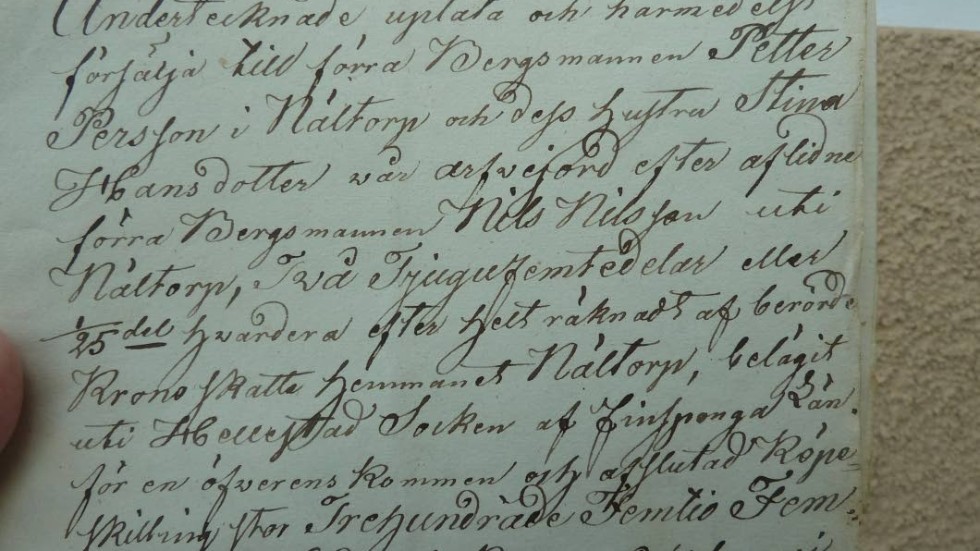 Undertecknade uplåta och härmedelst
försälja till förra Bergsmannen Petter
Persson i Nältorp och dess hustru Stina
Hansdotter vår arfvejord efter aflidne
förra Bergsmannen Nils Nilsson uti
Nältorp, Två Tjugufemtedelar eller
1/25 del hvardera efter helt räknadt af berörde
Krono skatte hemmanet Nältorp, belägit
uti Hellestad Socken af Finsponga Län.
för en öfverenskommen och afslutad Köpe-
skilling stor Trehundrade Femtio Fem-